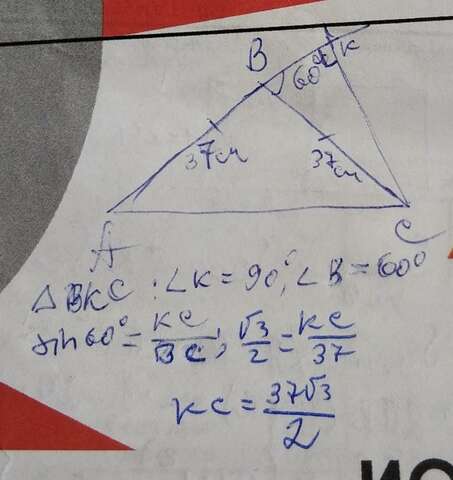 B
60°
K
37см
37см
A
C
△BKC : ∠K = 90°, ∠B = 60°
sin60° = KC/BC; √3/2 = KC/37
KC = 37√3/2